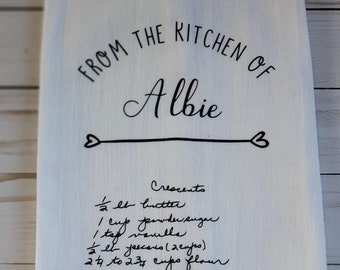 FROM THE KITCHEN OF
Albie
Crescents
½ lb butter
1 cup powder sugar
1 tsp vanilla
½ lb pecans (2 cups)
2¼ to 2¾ cups flour